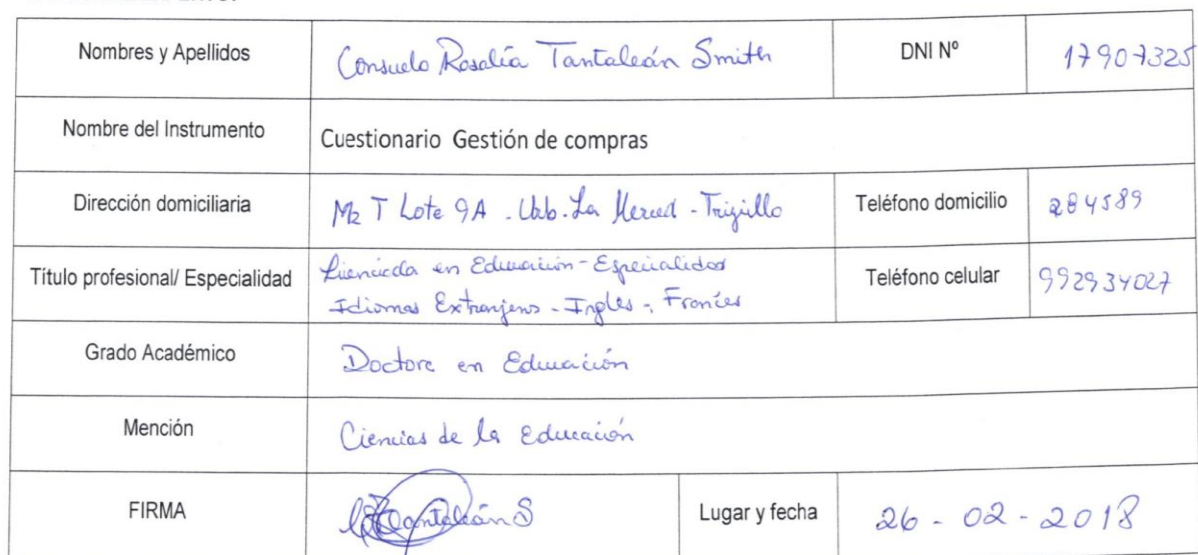 Nombres y Apellidos Consuelo Rosalía Tantaleán Smith DNI Nº 17907325
Nombre del Instrumento Cuestionario Gestión de compras
Dirección domiciliaria Mz T Lote 9A - Urb. La Merced - Trujillo Teléfono domicilio 284589
Título profesional/ Especialidad Licenciada en Educación - Especialidad
Idiomas Extranjeros - Ingles - Francés Teléfono celular 992934027
Grado Académico Doctora en Educación
Mención Ciencias de la Educación
FIRMA Tantaleán S Lugar y fecha 26 - 02 - 2018